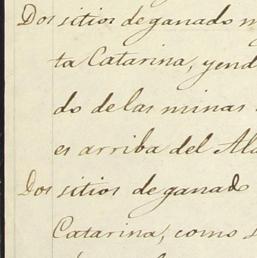 Dos sitios de ganado m
ta Catarina, yend
do de las minas
es arriba del Ala
Dos sitios de ganado
Catarina, como s